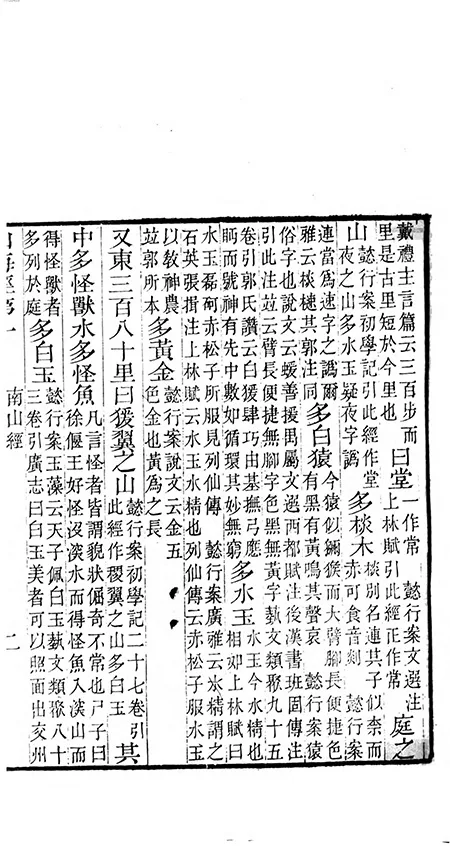 戴禮主言篇云三百步而里是古里短於今里也曰堂一作常 懿行案文選注上林賦引此經正作常庭之
山懿行案初學記引此經作堂夜之山多水玉疑夜字譌多棪木棪別名連其子似柰而赤可食音剡 懿行案
連當爲速字之譌爾雅云棪樕其郭注同多白猿今猿似獼猴而大臂腳長便捷色有黑有黃鳴其聲哀 懿行案猿
俗字也說文云蝯善援禺屬文選西都賦注後漢書班固傳注引此注竝云臂長便捷無腳字色黑無黃字藝文類聚九十五
卷引郭氏讚云白猨肆巧由基撫弓應眄而號神有先中數如循環其妙無窮多水玉水玉今水精也相如上林賦曰
水玉磊砢赤松子所服見列仙傳 懿行案廣雅云水精謂之石英張揖注上林賦云水玉水精也列仙傳云赤松子服水玉
以敎神農竝郭所本多黃金懿行案說文云金五色金也黃爲之長
又東三百八十里曰猨翼之山懿行案初學記二十七卷引此經作稷翼之山多白玉其
中多怪獸水多怪魚凡言怪者皆謂貌狀倔奇不常也尸子曰徐偃王好怪沒深水而得怪魚入深山而
得怪獸者多列於庭多白玉懿行案玉藻云天子佩白玉藝文類聚八十三卷引廣志曰白玉美者可以照面出交州
山海經第一 南山經 二